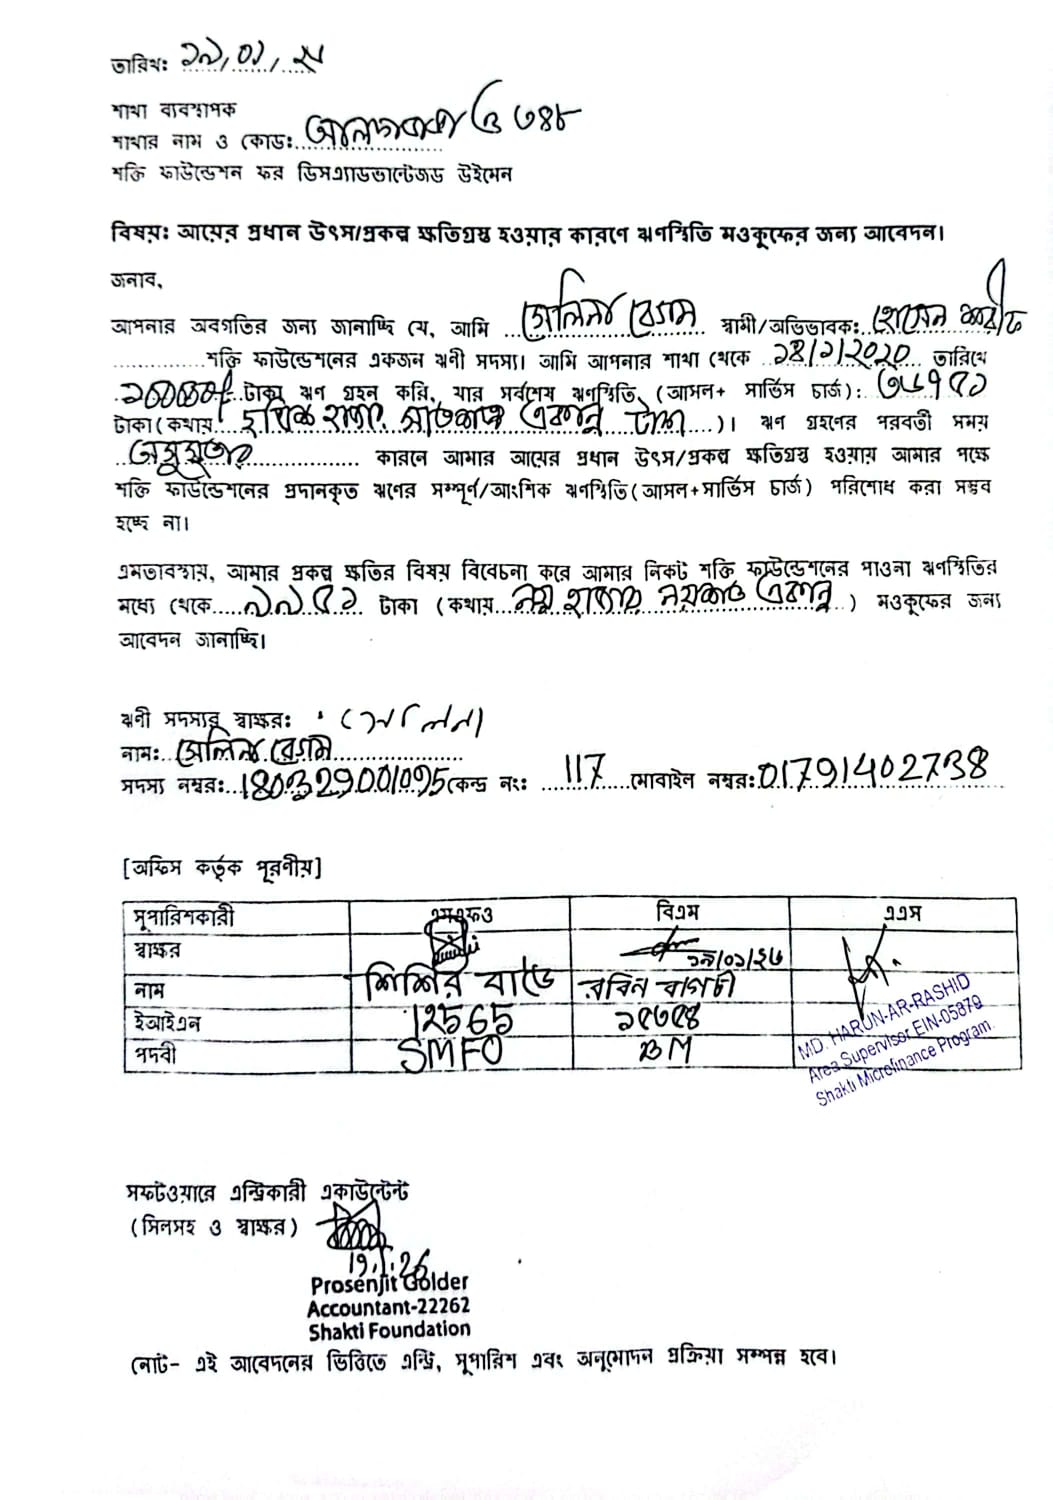 তারিখ: ১৯/০১/২৬
শাখা ব্যবস্থাপক
শাখার নাম ও কোড: ৩৪৮
শক্তি ফাউন্ডেশন ফর ডিসএ্যাডভান্টেজড উইমেন
বিষয়: আয়ের প্রধান উৎস/প্রকল্প ক্ষতিগ্রস্থ হওয়ার কারণে ঋণস্থিতি মওকুফের জন্য আবেদন।
জনাব,
আপনার অবগতির জন্য জানাচ্ছি যে, আমি সেলিনা বেগম স্বামী/অভিভাবক: হোসেন
শক্তি ফাউন্ডেশনের একজন ঋণী সদস্য। আমি আপনার শাখা থেকে ২৪/১/২০২০ তারিখে
টাকা ঋণ গ্রহন করি, যার সর্বশেষ ঋণস্থিতি (আসল+ সার্ভিস চার্জ):
টাকা (কথায় হাজার সাতশত একান্ন টাকা)। ঋণ গ্রহণের পরবর্তী সময়
অসুস্থতার কারনে আমার আয়ের প্রধান উৎস/প্রকল্প ক্ষতিগ্রস্থ হওয়ায় আমার পক্ষে
শক্তি ফাউন্ডেশনের প্রদানকৃত ঋণের সম্পূর্ণ/আংশিক ঋণস্থিতি(আসল+সার্ভিস চার্জ) পরিশোধ করা সম্ভব
হচ্ছে না।
এমতাবস্থায়, আমার প্রকল্প ক্ষতির বিষয় বিবেচনা করে আমার নিকট শক্তি ফাউন্ডেশনের পাওনা ঋণস্থিতির
মধ্যে থেকে ৯৯৫১ টাকা (কথায় নয় হাজার নয়শত একান্ন) মওকুফের জন্য
আবেদন জানাচ্ছি।
ঋণী সদস্যর স্বাক্ষর: সেলিনা
নাম: সেলিনা বেগম
সদস্য নম্বর: 180329001095 কেন্দ্র নং: 117 মোবাইল নম্বর: 01791402738
[অফিস কর্তৃক পূরণীয়]
সুপারিশকারী এসএফও বিএম এএস
স্বাক্ষর ১৯/০১/২৬
নাম শিশির বাড়ৈ রবিন বাগচী
ইআইএন 12565 ১৫৩৫৪
পদবী SMFO BM
MD. HARUN-AR-RASHID
Area Supervisor EIN-05879
Shakti Microfinance Program.
সফটওয়ারে এন্ট্রিকারী একাউন্টেন্ট
(সিলসহ ও স্বাক্ষর)
19.1.26
Prosenjit Golder
Accountant-22262
Shakti Foundation
নোট- এই আবেদনের ভিত্তিতে এন্ট্রি, সুপারিশ এবং অনুমোদন প্রক্রিয়া সম্পন্ন হবে।